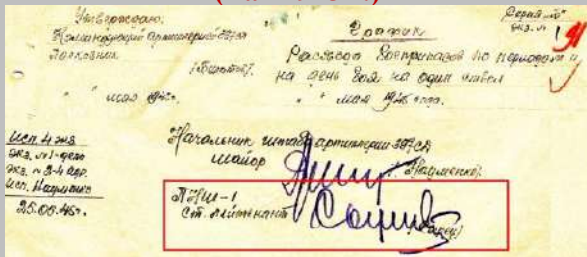 Утверждаю:
Командующий артиллерией
Полковник
" " мая 194
График
Расхода боеприпасов по периодам и
на день боя на один ствол
" " мая 1945 года.
Серия "
экз. № 1
Исп. 4 экз
экз. №1-дело
экз. № 2-4 адр.
Исп. Науменко
25.06.45г.
Начальник штаба артиллерии
майор
/Науменко/.
ПНШ-1
Ст. лейтенант